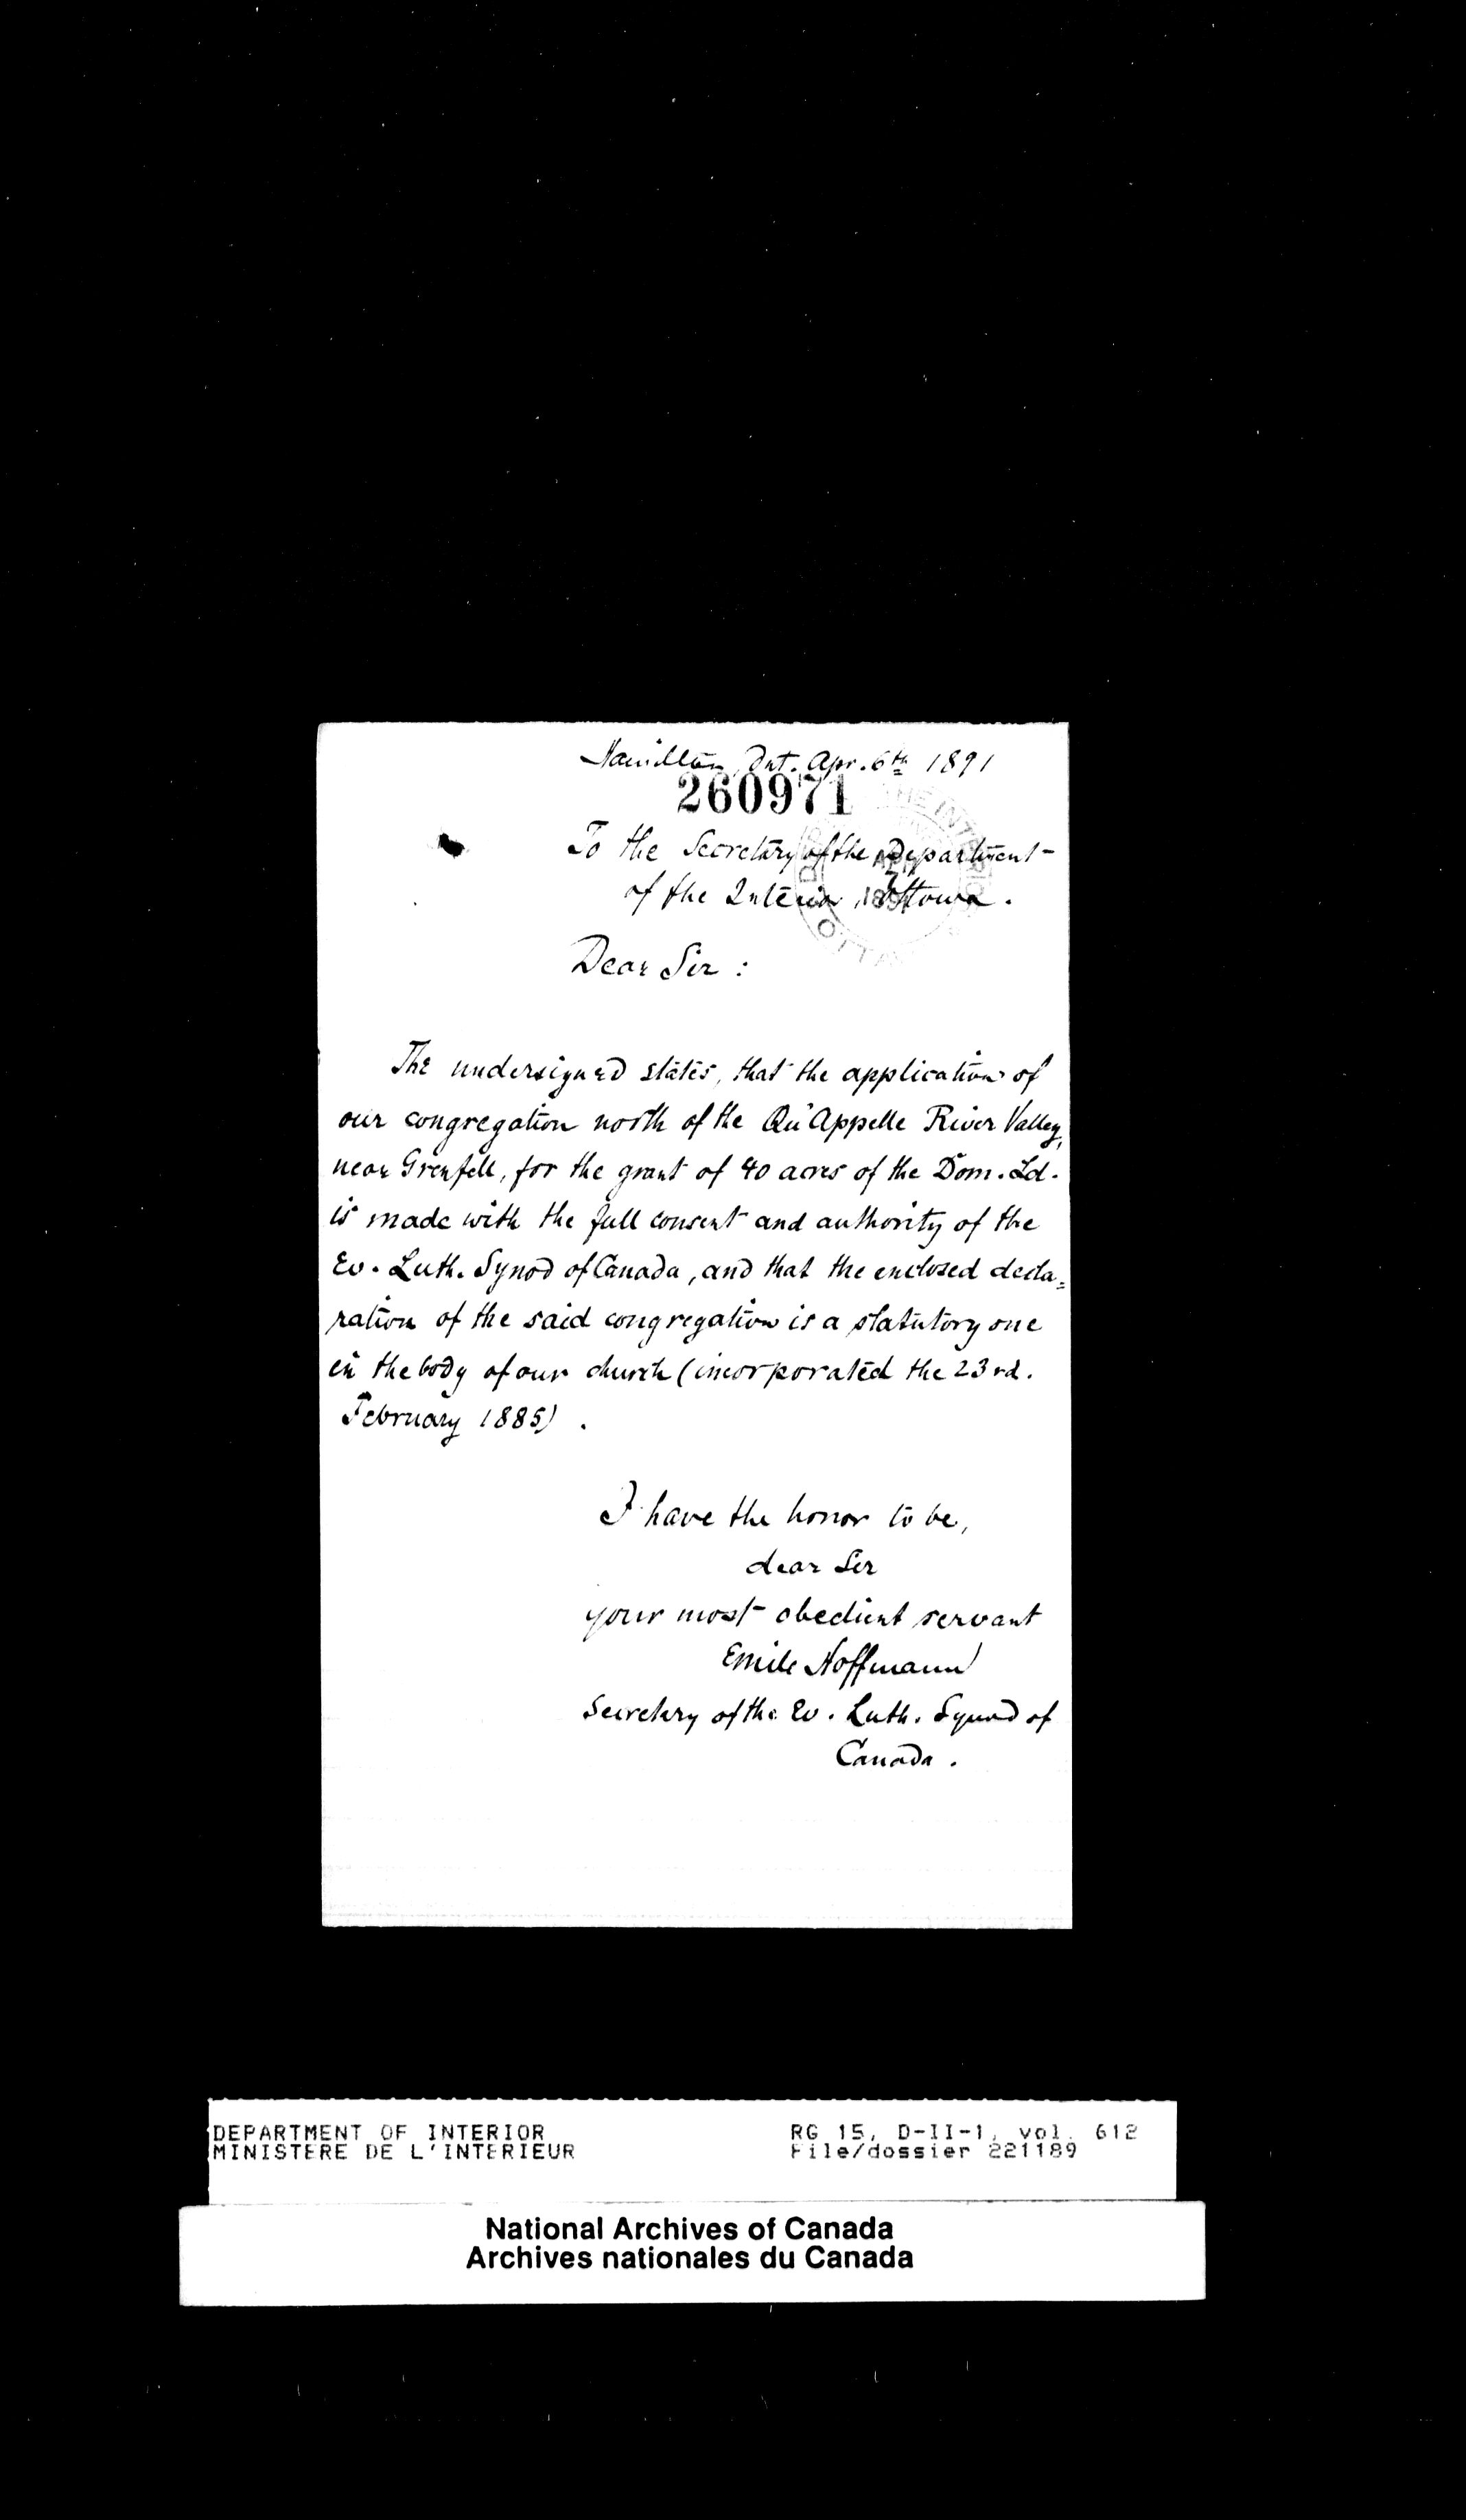 Hamilton, Ont. Apr. 6th 1891
260971
To the Secretary of the Department
of the Interior, Ottowa.
Dear Sir :
The undersigned states, that the application of
our congregation north of the Qu'Appelle River Valley,
near Grenfell, for the grant of 40 acres of the Dom. Ld.
is made with the full consent and authority of the
Ev. Luth. Synod of Canada, and that the enclosed decla=
ration of the said congregation is a statutory one
in the body of our church (incorporated the 23rd.
February 1885) .
I have the honor to be,
dear Sir
your most obedient servant
Emile Hoffmann
Secretary of the Ev. Luth. Synod of
Canada .
DEPARTMENT OF INTERIOR
MINISTERE DE L'INTERIEUR
RG 15, D-II-1, vol. 612
File/dossier 221189
National Archives of Canada
Archives nationales du Canada